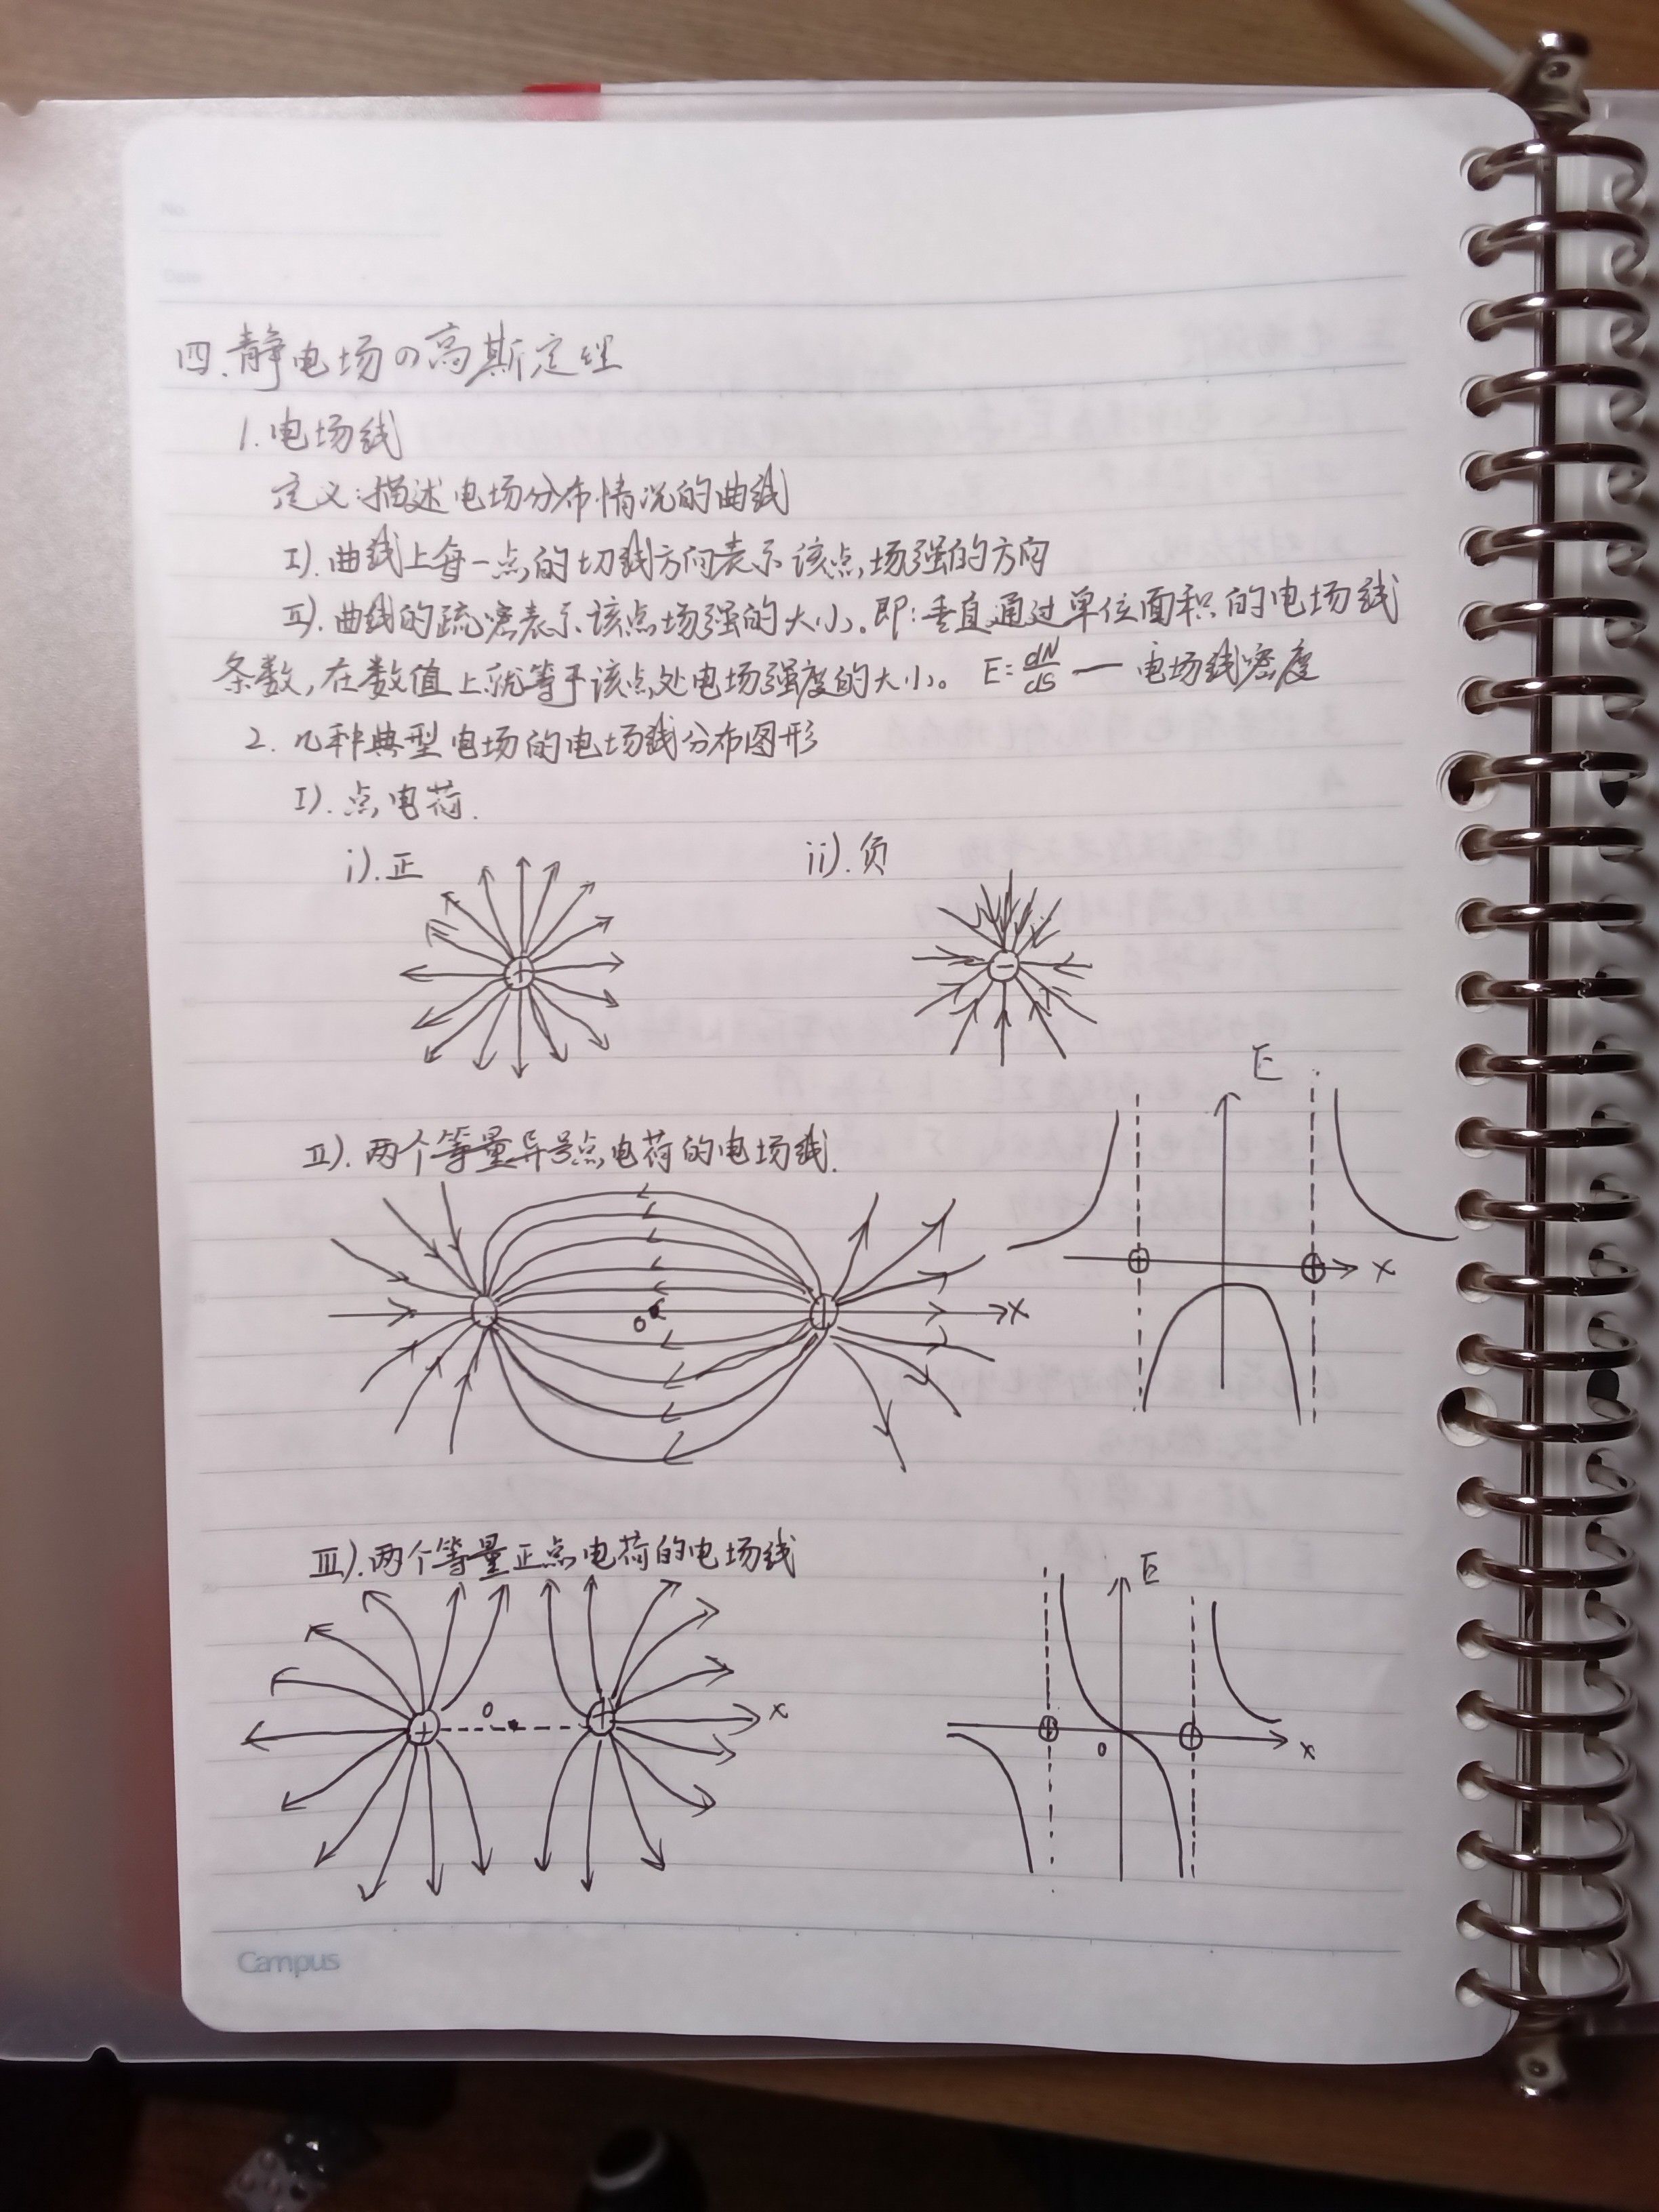 No.
Date
四.静电场の高斯定理
1.电场线
定义:描述电场分布情况的曲线
I).曲线上每一点的切线方向表示该点场强的方向
II).曲线的疏密表示该点场强的大小。即:垂直通过单位面积的电场线
条数,在数值上就等于该点处电场强度的大小。 E=dN/dS — 电场线密度
2.几种典型电场的电场线分布图形
I).点电荷.
i).正 ii).负
+ −
E
II).两个等量异号点电荷的电场线.
x
0 x
III).两个等量正点电荷的电场线
E
0 x
+ +
0 x
Campus